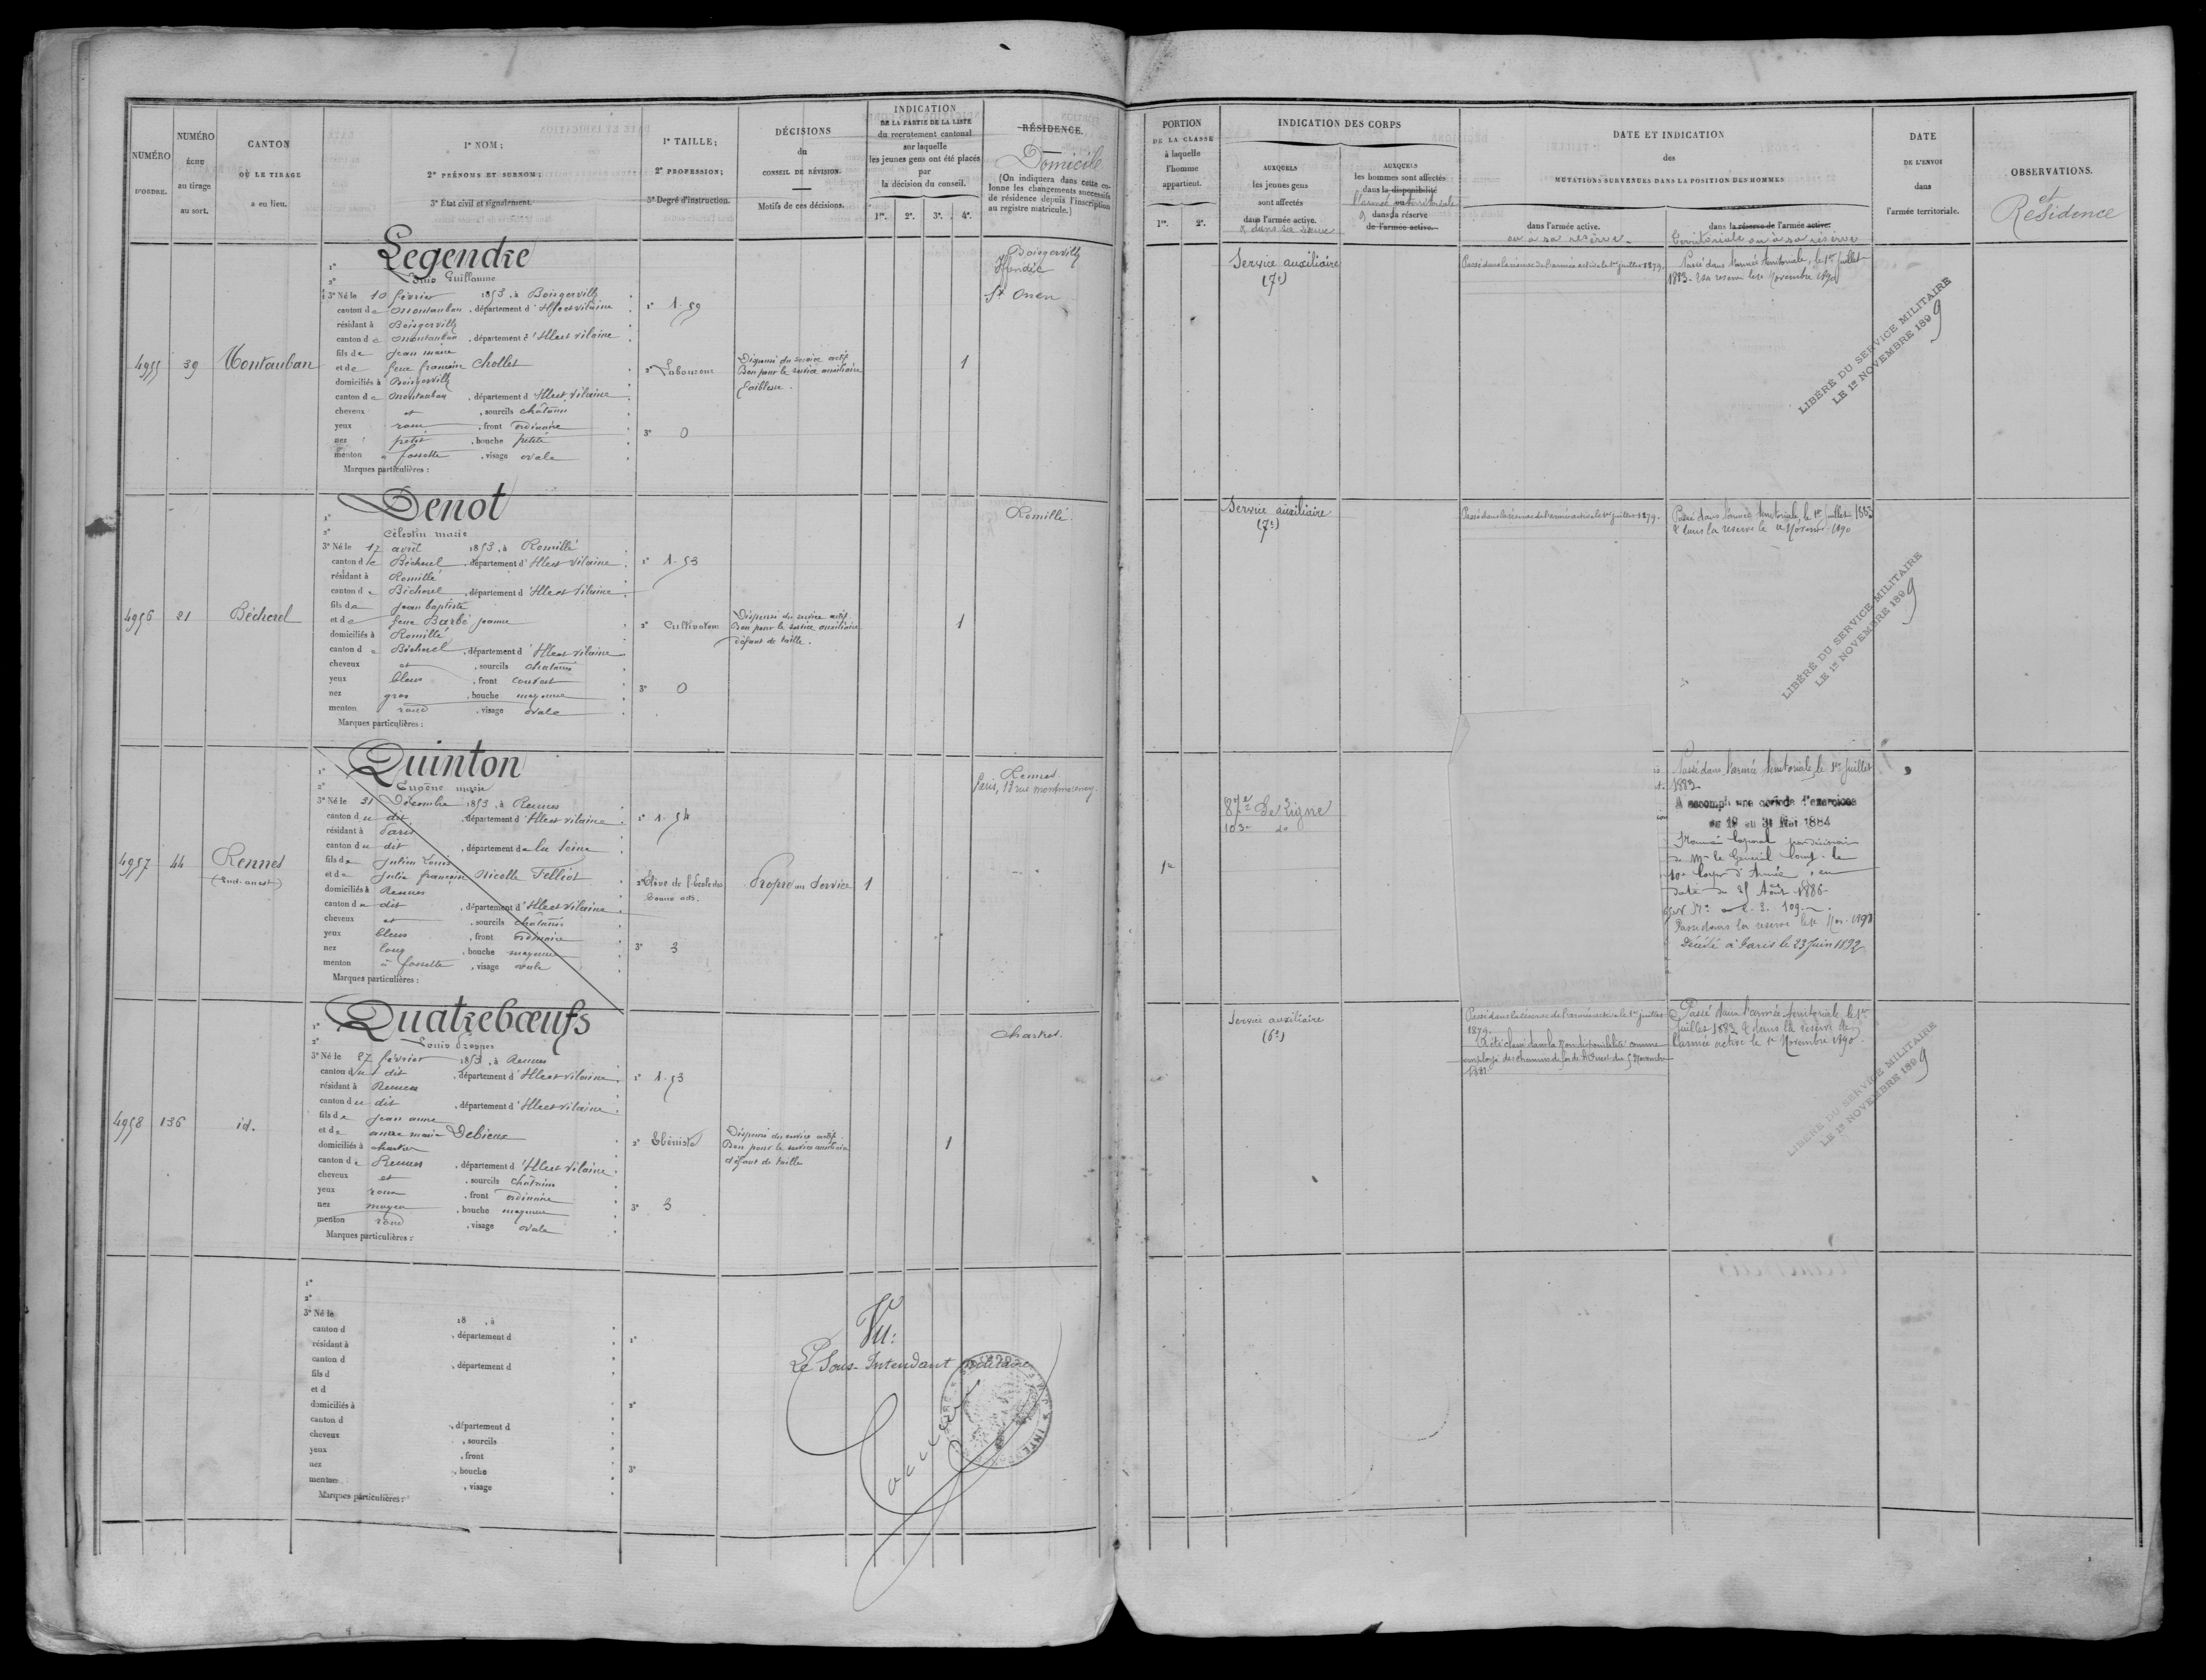 NUMÉRO
D'ORDRE.
NUMÉRO
ÉCHU
au tirage
au sort.
CANTON
OÙ LE TIRAGE
a eu lieu.
1º NOM;
2º PRÉNOMS ET SURNOM;
3º État civil et signalement.
1º TAILLE;
2º PROFESSION;
3º Degré d'instruction.
DÉCISIONS
du
CONSEIL DE RÉVISION.
Motifs de ces décisions.
INDICATION
DE LA PARTIE DE LA LISTE
du recrutement cantonal
sur laquelle
les jeunes gens ont été placés
par
la décision du conseil.
1re. 2e. 3e. 4e.
RÉSIDENCE.
Domicile
(On indiquera dans cette co-
lonne les changements successifs
de résidence depuis l'inscription
au registre matricule.)
4955
39
Montauban
Legendre
1º
2º Guillaume
3º Né le 10 février 1853, à Boisgervilly
canton de Montauban, département d'Ille et Vilaine
résidant à Boisgervilly
canton de Montauban, département d'Ille et Vilaine
fils de Jean marie
et de feue françoise Chollet
domiciliés à Boisgervilly
canton de Montauban, département d'Ille et Vilaine
cheveux et, sourcils châtains
yeux roux, front ordinaire
nez petit, bouche petite
menton à fossette, visage ovale
Marques particulières :
1º 1.59
2º Laboureur
3º 0
Dispensé du service actif
Bon pour le service auxiliaire
faiblesse.
1
Boisgervilly
St Onen
4956
21
Bécherel
Denot
1º
2º Célestin marie
3º Né le 17 avril 1853, à Romillé
canton de Bécherel, département d'Ille et Vilaine
résidant à Romillé
canton de Bécherel, département d'Ille et Vilaine
fils de Jean baptiste
et de feue Barbé jeanne
domiciliés à Romillé
canton de Bécherel, département d'Ille et Vilaine
cheveux et, sourcils chatains
yeux bleus, front couvert
nez gros, bouche moyenne
menton rond, visage ovale
Marques particulières :
1º 1.53
2º Cultivateur
3º 0
Dispensé du service actif
Bon pour le service auxiliaire
défaut de taille.
1
Romillé.
4957
44
Rennes
(Sud-ouest)
Quinton
1º
2º Eugène marie
3º Né le 31 Décembre 1853, à Rennes
canton du dit, département d'Ille et Vilaine
résidant à Paris
canton du dit, département de la Seine
fils de Julien Louis
et de Julie françoise Nicolle Felliot
domiciliés à Rennes
canton du dit, département d'Ille et Vilaine
cheveux et, sourcils châtains
yeux bleus, front ordinaire
nez long, bouche moyenne
menton à fossette, visage ovale
Marques particulières :
1º 1.54
2º Elève de l'Ecole des
beaux arts.
3º 3
Propre au Service
1
Rennes.
Paris, 13 rue montmorency
4958
136
id.
Quatrebœufs
1º
2º Louis
3º Né le 27 février 1853, à Rennes
canton du dit, département d'Ille et Vilaine
résidant à Rennes
canton du dit, département d'Ille et Vilaine
fils de Jean anne
et de anne marie Debieux
domiciliés à chartres
canton de Rennes, département d'Ille et Vilaine
cheveux et, sourcils châtains
yeux roux, front ordinaire
nez moyen, bouche moyenne
menton rond, visage ovale
Marques particulières :
1º 1.53
2º Ebéniste
3º 3
Dispensé du service actif.
Bon pour le service auxiliaire
défaut de taille
1
Chartres.
1º
2º
3º Né le 18 , à
canton d , département d
résidant à
canton d , département d
fils d
et d
domiciliés à
canton d , département d
cheveux , sourcils
yeux , front
nez , bouche
menton , visage
Marques particulières :
1º
2º
3º
Vu:
Le Sous-Intendant militaire
PORTION
DE LA CLASSE
à laquelle
l'homme
appartient.
1re. 2e.
INDICATION DES CORPS
AUXQUELS
les jeunes gens
sont affectés
dans l'armée active.
& dans sa réserve
AUXQUELS
les hommes sont affectés
dans la disponibilité
l'armée territoriale
ou
& dans sa réserve
de l'armée active.
DATE ET INDICATION
des
MUTATIONS SURVENUES DANS LA POSITION DES HOMMES
dans l'armée active.
ou à sa réserve
dans la réserve de l'armée active.
territoriale ou à sa réserve
DATE
DE L'ENVOI
dans
l'armée territoriale.
OBSERVATIONS.
et
Résidence
Service auxiliaire
(7e)
Passé dans la réserve de l'armée active le 1er juillet 1879.
Passé dans l'armée territoriale, le 1er juillet
1883. & sa réserve le 1er Novembre 1890
LIBÉRÉ DU SERVICE MILITAIRE
LE 1er NOVEMBRE 1899
Service auxiliaire
(7e)
Passé dans la réserve de l'armée active le 1er juillet 1879.
Passé dans l'armée territoriale, le 1er juillet 1883
& dans la réserve le 1er Novembre 1890
LIBÉRÉ DU SERVICE MILITAIRE
LE 1er NOVEMBRE 1899
1re
87e de Ligne
103e do
Passé dans l'armée territoriale, le 1er juillet
1883.
A accompli une période d'exercices
du 19 au 31 Mai 1884
Promu Caporal par décision
de Mr le Général Comt. le
10e Corps d'Armée, en
date du 25 Août 1886
Passé dans la réserve le 1er Nov. 1890
Décédé à Paris le 23 Juin 1892
Service auxiliaire
(6e)
Passé dans la réserve de l'armée active le 1er juillet
1879.
A été classé dans la Non disponibilité comme
employé des chemins de fer de l'Ouest du 5 Novembre
1881.
Passé dans l'armée territoriale le 1er
Juillet 1883 & dans la réserve de
l'armée active le 1er Novembre 1890.
LIBÉRÉ DU SERVICE MILITAIRE
LE 1er NOVEMBRE 1899